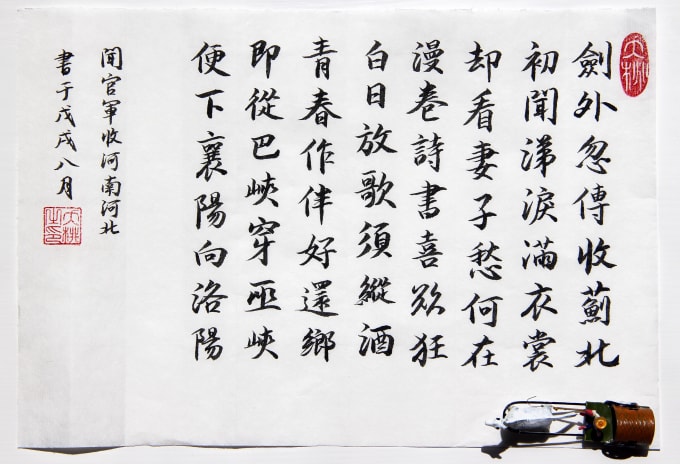 劍外忽傳收薊北
初聞涕淚滿衣裳
却看妻子愁何在
漫卷詩書喜欲狂
白日放歌須縱酒
青春作伴好還鄉
即從巴峽穿巫峽
便下襄陽向洛陽
聞官軍收河南河北
書于戊戌八月